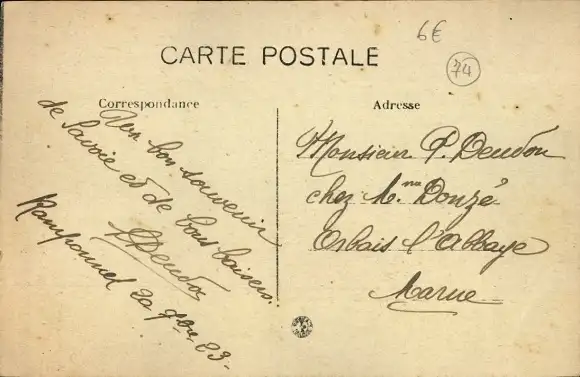 6€
74
CARTE POSTALE
Correspondance
Adresse
Un bon souvenir
de Savoie et de bons baisers.
Deudon
Ramponnet 20 9bre 23.
Monsieur P. Deudon
chez Mme Douzé
Orbais l'Abbaye
Marne